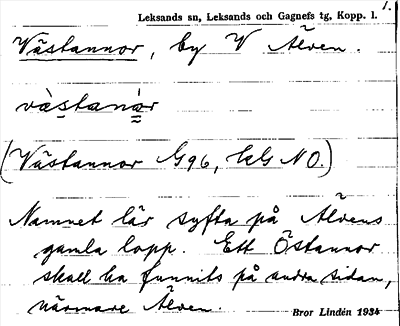 1.
Leksands sn, Leksands och Gagnefs tg, Kopp. l.
Västannor, by V Älven.
vàstanàr
(Västannor G96, kG NO.)
Namnet lär syfta på Älvens
gamla lopp. Ett Östannor
skall ha funnits på andra sidan,
närmare Älven.
Bror Lindén 1934